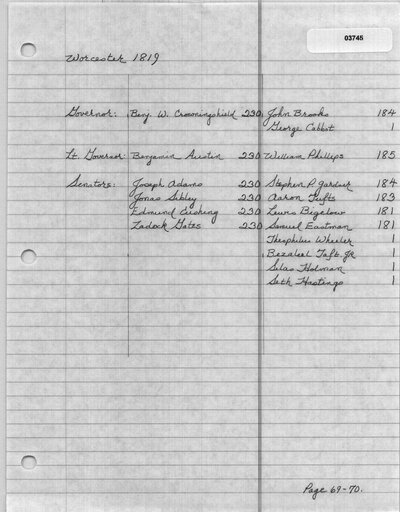 03745
Worcester 1819
Governor: Benj. W. Crowningshield 230 John Brooks 184
George Cabbot 1
Lt. Governor: Benjamin Austin 230 William Phillips 185
Senators: Joseph Adams 230 Stephen P. Gardner 184
Jonas Sibley 230 Aaron Tufts 183
Edmund Cushing 230 Lewis Bigelow 181
Zadock Gates 230 Samuel Eastman 181
Theophilus Wheeler 1
Bezaleel Taft Jr 1
Silas Holman 1
Seth Hastings 1
Page 69-70.